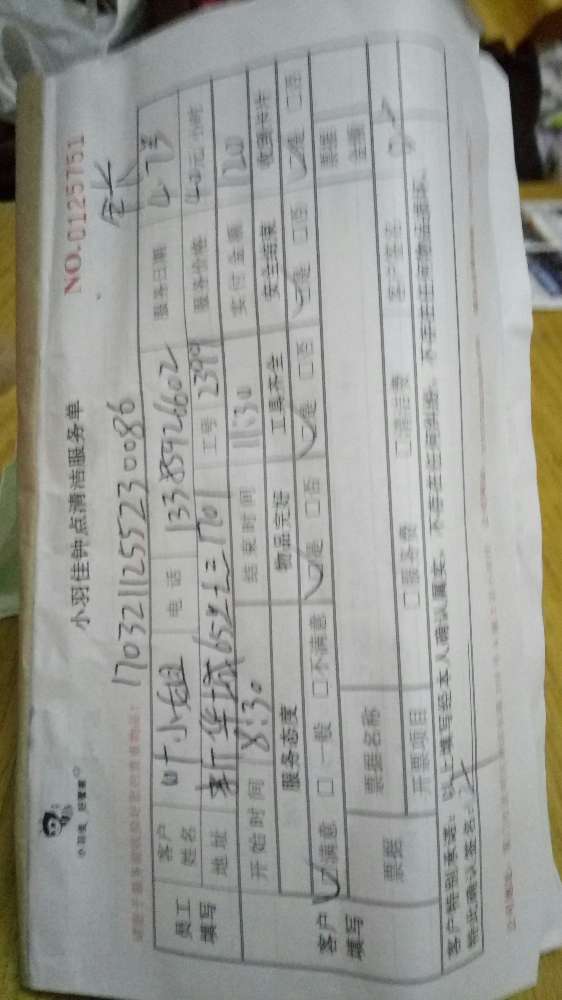 小羽佳钟点清洁服务单
NO.0125751
小羽佳 好管家
17032112552300086
全长
员工填写
客户姓名 叶小姐 电话 13385926602 服务日期 4.7号
地址 新华城65号之二1701 工号 2399 服务价格 40元/小时
开始时间 8:30 结束时间 11:30 实付金额 120
客户填写
服务态度 物品完好 工具齐全 安全结束 收费合计
满意 □一般 □不满意 是 □否 是 □否 是 □否 是 □否
票据 票据名称 票据金额
开票项目 □服务费 □清洁费 客户签签
客户特别承诺：以上填写经本人确认属实，不存在任何纠纷，不存在任何物品损坏，
特此确认签名：